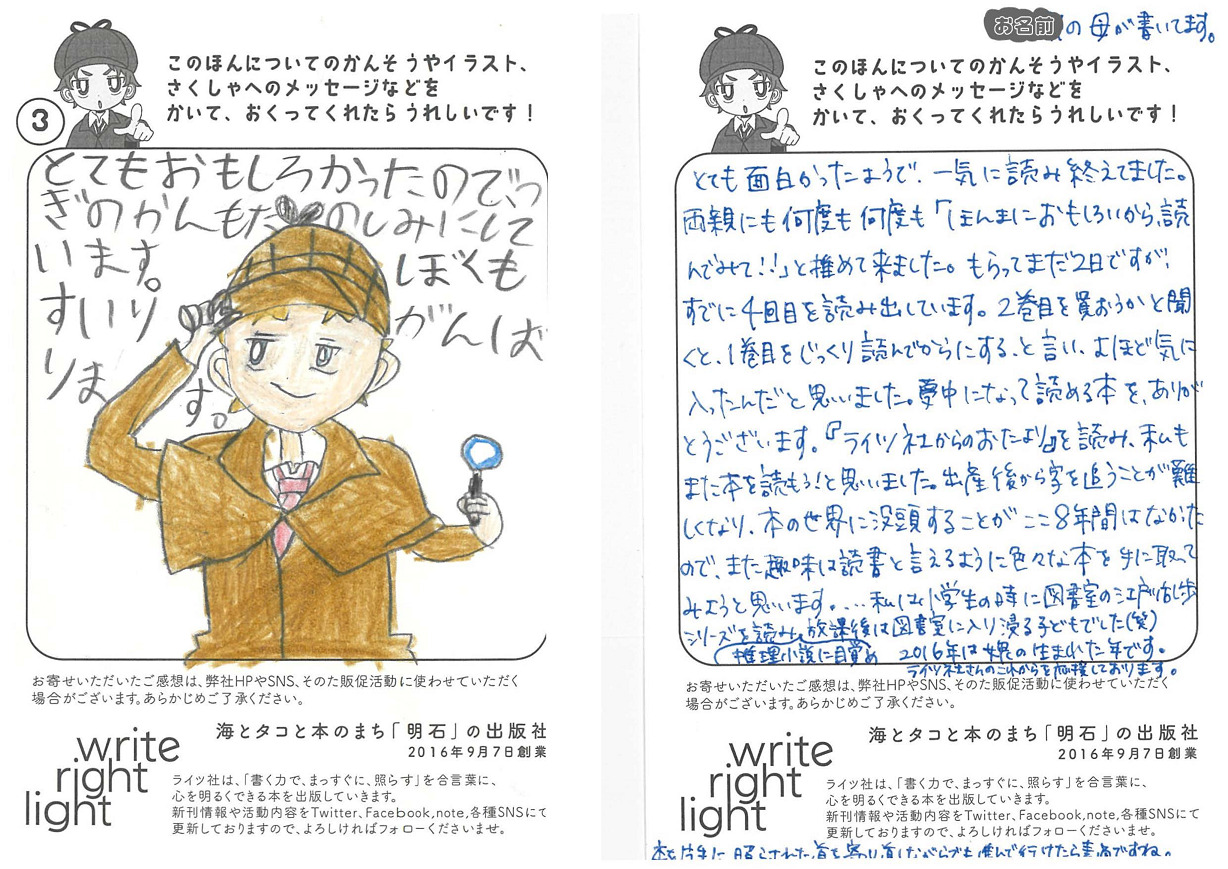 このほんについてのかんそうやイラスト、
さくしゃへのメッセージなどを
かいて、おくってくれたら うれしいです！
3
とてもおもしろかったのでつ
ぎのかんもたのしみにして
います。ぼくも
すいりがんば
ります。
お寄せいただいたご感想は、弊社HPやSNS、そのた販促活動に使わせていただく
場合がございます。あらかじめご了承ください。
海とタコと本のまち「明石」の出版社
2016年9月7日創業
write
right
light
ライツ社は、「書く力で、まっすぐに、照らす」を合言葉に、
心を明るくできる本を出版していきます。
新刊情報や活動内容をTwitter、Facebook,note,各種SNSにて
更新しておりますので、よろしければフォローくださいませ。
お名前 の母が書いてます。
このほんについてのかんそうやイラスト、
さくしゃへのメッセージなどを
かいて、おくってくれたら うれしいです！
とても面白かったようで、一気に読み終えてました。
両親にも何度も何度も「ほんまにおもしろいから、読
んでみて!!」と推めて来ました。もらってまだ2日ですが、
すでに4回目を読み出しています。2巻目を買おうかと聞
くと、1巻目をじっくり読んでからにする、と言い、よほど気に
入ったんだと思いました。夢中になって読める本を、ありが
とうございます。『ライツ社からのおたより』を読み、私も
また本を読もう!と思いました。出産後から字を追うことが難
しくなり、本の世界に没頭することがここ8年間はなかった
ので、また趣味は読書と言えるように色々な本を手に取って
みようと思います。...私は小学生の時に図書室の江戸川乱歩
シリーズを読み、放課後は図書室に入り浸る子どもでした(笑)
推理小説に目覚め 2016年は甥の生まれた年です。
ライツ社さんのこれからを応援しております。
お寄せいただいたご感想は、弊社HPやSNS、そのた販促活動に使わせていただく
場合がございます。あらかじめご了承ください。
海とタコと本のまち「明石」の出版社
2016年9月7日創業
write
right
light
ライツ社は、「書く力で、まっすぐに、照らす」を合言葉に、
心を明るくできる本を出版していきます。
新刊情報や活動内容をTwitter、Facebook,note,各種SNSにて
更新しておりますので、よろしければフォローくださいませ。
照らされた道を寄り道しながらでも進んで行けたら幸せですね。